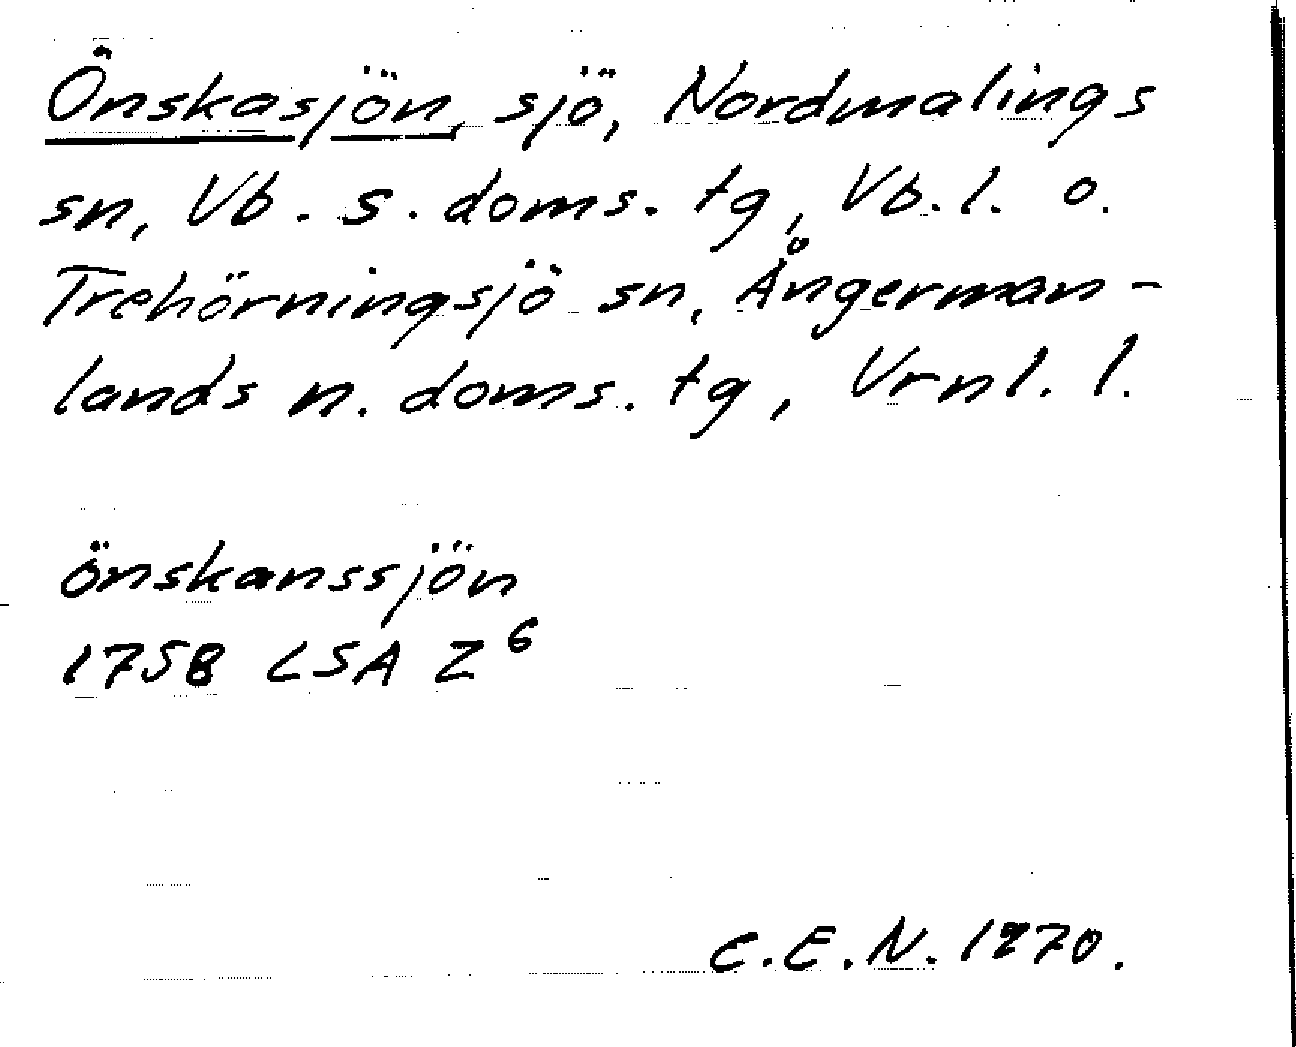 Önskasjön, sjö, Nordmalings
sn, Vb. s. doms. tg, Vb. l. o.
Trehörningsjö sn, Ångerman-
lands n. doms. tg, Vrnl. l.
Önskanssjön
1758 LSA Z 6
C.E.N. 1970.